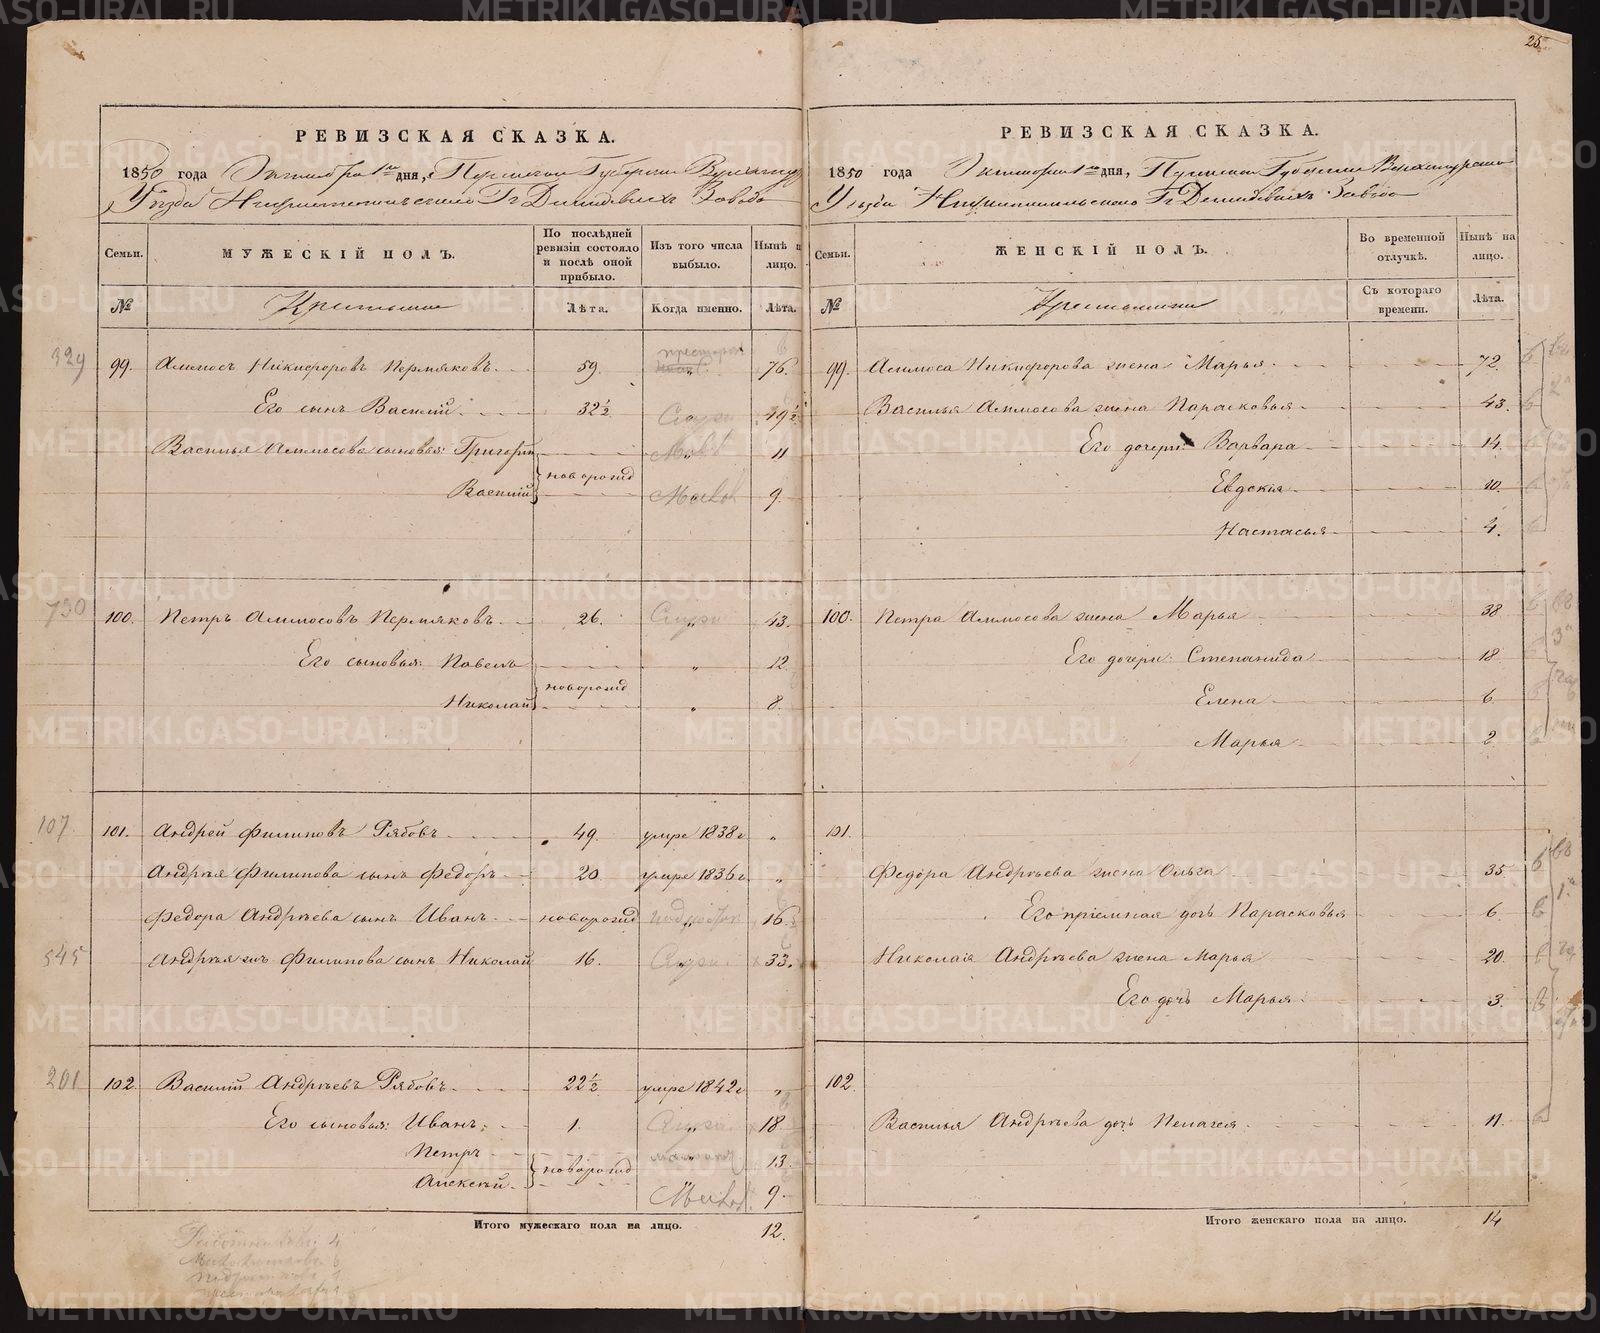 25
РЕВИЗСКАЯ СКАЗКА.
1850 года Октября 1го дня, Пермской Губернии Верхотур
Уѣзда Нижнетагильскаго Гг Демидовыхъ Завода
Семьи.
МУЖЕСКІЙ ПОЛЪ.
По послѣдней ревизіи состояло и послѣ оной прибыло.
Изъ того числа выбыло.
Нынѣ на лицо.
№
Крестьяне
Лѣта.
Когда именно.
Лѣта.
329 99. Аммосъ Никифоровъ Пермяковъ. 59. престарел 76.
Его сынъ Василій 32½ 49½
Василья Аммосова сыновья: Григорій новорожд 11
Василій 9.
730 100. Петръ Аммосовъ Пермяковъ 26. 43.
Его сыновья: Павелъ новорожд „ 12.
Николай „ 8.
107 101. Андрей Филиповъ Рябовъ 49. умре 1838г „
Андрея Филипова сынъ Федоръ 20 умре 1836г „
Федора Андрѣева сынъ Иванъ новорожд 16½
545 Андрея жъ Филипова сынъ Николай 16. 33.
201 102 Василій Андрѣевъ Рябовъ 22½ умре 1842г „
Его сыновья: Иванъ 1. 18
Петръ новорожд 13.
Алексѣй 9.
Итого мужескаго пола на лицо. 12.
РЕВИЗСКАЯ СКАЗКА.
1850 года Октября 1го дня, Пермской Губерніи Верхотурскаго
Уѣзда Нижнетагильскаго Гг Демидовыхъ Завода
Семьи.
ЖЕНСКІЙ ПОЛЪ.
Во временной отлучкѣ.
Нынѣ на лицо.
№
Крестьянки
Съ котораго времени.
Лѣта.
99. Аммоса Никифорова жена Марья 72.
Василья Аммосова жена Парасковья 43.
Его дочери: Варвара 14.
Евдокія 10.
Настасья 4.
100. Петра Аммосова жена Марья 38
Его дочери: Степанида 18
Елена 6
Марья 2
101.
Федора Андрѣева жена Ольга 35
Его пріемная дочь Парасковья 6.
Николая Андрѣева жена Марья 20.
Его дочь Марья 3.
102
Василья Андрѣева дочь Пелагея 11.
Итого женскаго пола на лицо. 14
METRIKI.GASO-URAL.RU